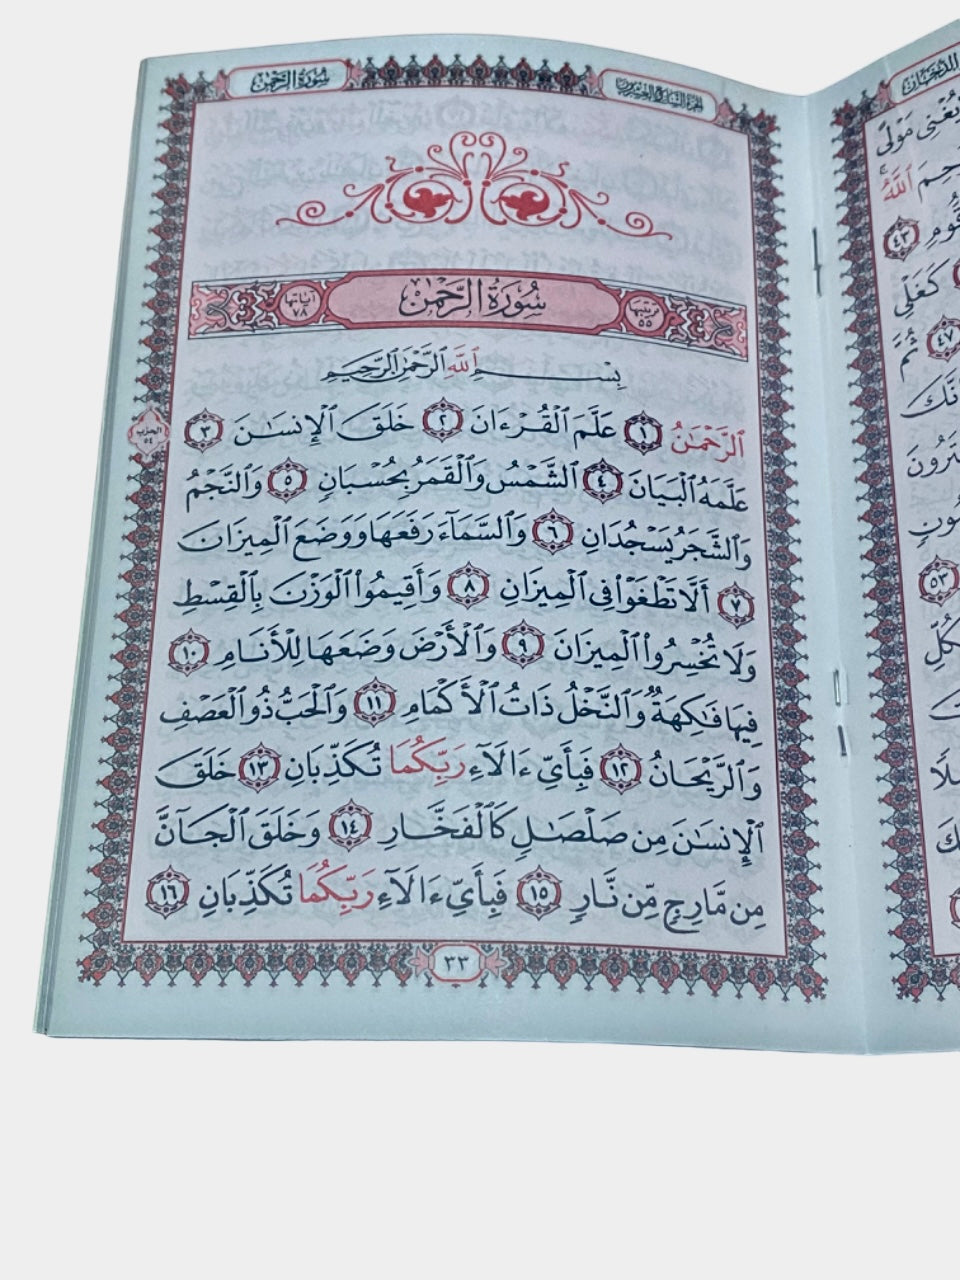 الدخان
يُغْنِى مَوْلًى
ٱللَّهُ
٤٣
٤٧ ثُمَّ
٥٣
سُورَةُ الرَّحْمٰن
سُورَةُ الرَّحْمٰن
ترتيبها ٥٥
آياتها ٧٨
بِسْمِ ٱللَّهِ ٱلرَّحْمَٰنِ ٱلرَّحِيمِ
ٱلرَّحْمَٰنُ ١ عَلَّمَ ٱلْقُرْءَانَ ٢ خَلَقَ ٱلْإِنسَٰنَ ٣
عَلَّمَهُ ٱلْبَيَانَ ٤ ٱلشَّمْسُ وَٱلْقَمَرُ بِحُسْبَانٍ ٥ وَٱلنَّجْمُ
وَٱلشَّجَرُ يَسْجُدَانِ ٦ وَٱلسَّمَآءَ رَفَعَهَا وَوَضَعَ ٱلْمِيزَانَ
٧ أَلَّا تَطْغَوْا۟ فِى ٱلْمِيزَانِ ٨ وَأَقِيمُوا۟ ٱلْوَزْنَ بِٱلْقِسْطِ
وَلَا تُخْسِرُوا۟ ٱلْمِيزَانَ ٩ وَٱلْأَرْضَ وَضَعَهَا لِلْأَنَامِ ١٠
فِيهَا فَٰكِهَةٌ وَٱلنَّخْلُ ذَاتُ ٱلْأَكْمَامِ ١١ وَٱلْحَبُّ ذُو ٱلْعَصْفِ
وَٱلرَّيْحَانُ ١٢ فَبِأَىِّ ءَالَآءِ رَبِّكُمَا تُكَذِّبَانِ ١٣ خَلَقَ
ٱلْإِنسَٰنَ مِن صَلْصَٰلٍ كَٱلْفَخَّارِ ١٤ وَخَلَقَ ٱلْجَآنَّ
مِن مَّارِجٍ مِّن نَّارٍ ١٥ فَبِأَىِّ ءَالَآءِ رَبِّكُمَا تُكَذِّبَانِ ١٦
الحزب ٥٤
٣٣